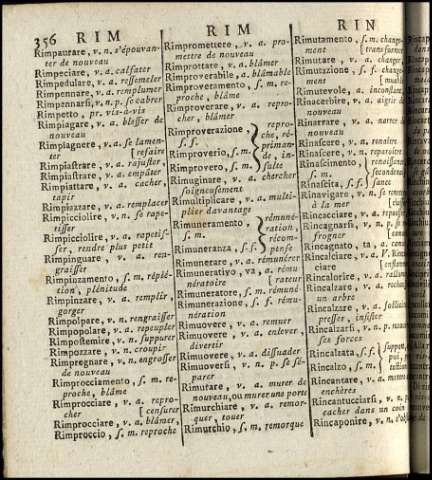 356 RIM RIM RIN
Rimpaurare, v. n. s'épouvan-
ter de nouveau
Rimpeciare, v. a. calfater
Rimpedulare, v. a. ressemeler
Rimpennare, v. a. remplumer
Rimpennarsi, v. n. p. se cabrer
Rimpetto, pr. vis-à-vis
Rimpiagare, v. a. blesser de
nouveau
Rimpiagnere, v. a. se lamen-
ter [refaire
Rimpiastrare, v. a. rajuster,
Rimpiastrare, v. a. empâter
Rimpiattare, v. a. cacher,
tapir
Rimpiazzare, v. a. remplacer
Rimpicciolire, v. n. se rape-
tisser
Rimpicciolire, v. a. rapetis-
ser, rendre plus petit
Rimpinguare, v. a. ren-
graisser
Rimpinzamento, s. m. réplé-
tion, plénitude
Rimpinzare, v. a. remplir,
gorger
Rimpolpare, v. n. rengraisser
Rimpopolare, v. a. repeupler
Rimpostemire, v. n. suppurer
Rimpozzare, v. n. croupir
Rimpregnare, v. n. engrosser
de nouveau
Rimprocciamento, s. m. re-
proche, blâme
Rimprocciare, v. a. repro-
cher [censurer
Rimprocciare, v. a. blâmer,
Rimproccio, s. m. reproche
Rimpromettere, v. a. pro-
mettre de nouveau
Rimprottare, v. a. blâmer
Rimproverabile, a. blâmable
Rimproveramento, s. m. re-
proche, blâme
Rimproverare, v. a. repro-
cher, blâmer
Rimproverazione, repro-
s. f. che, ré-
Rimproverio, s. m. priman-
de, in-
Rimprovero, s. m. sulte
Rimuginare, v. a. chercher
soigneusement
Rimultiplicare, v. a. multi-
plier davantage
Rimuneramento, rémuné-
s. m. ration,
récom-
Rimuneranza, s. f. pense
Rimunerare, v. a. rémunérer
Rimuneratiyo, va, a. rému
nératoire [rateur
Rimuneratore, s. m. rémuné
Rimunerazione, s. f. rému-
nération
Rimuovere, v. a. remuer
Rimuovere, v. a. enlever,
divertir
Rimuovere, v. a. dissuader
Rimuoversi, v. n. p. se sé-
parer
Rimurare, v. a. murer de
nouveau, ou murer une porte
Rimurchiare, v. a. remor-
quer, touer
Rimurchio, s. m. remorque
Rimutamento, s. m. change-
ment [transformer
Rimutare, v. a. changer,
Rimutazione, s. f. change-
ment
Rimutevole, a. inconstant,
Rinacerbire, v. a. aigrir de
nouveau
Rinarrare, v. a. narrer de
nouveau
Rinascere, v. n. renaître
Rinascere, v. n. reparoître
Rinascimento, renaissance
s. m. seconde
Rinascita, s. f. naissance
Rinavigare, v. n.
à la mer
Rincacciare, v. a. repousser
Rincagnarsi, v. n. p.
frogner
Rincagnato, ta, a.
Rincalciare, v. a. V.
ciare
Rincalorire, v. a.
Rincalzare, v. a. rechausser
un arbre
Rincalzare, v. a. solliciter
presser, insister
Rincalzarsi, v. n. p.
ses forces
Rincalzata, s. f.
Rincalzo, s. m.
Rincantare, v. a.
enchères
Rincantucciarsi, v. n. p.
cacher dans un coin
Rincaponire, v. n.